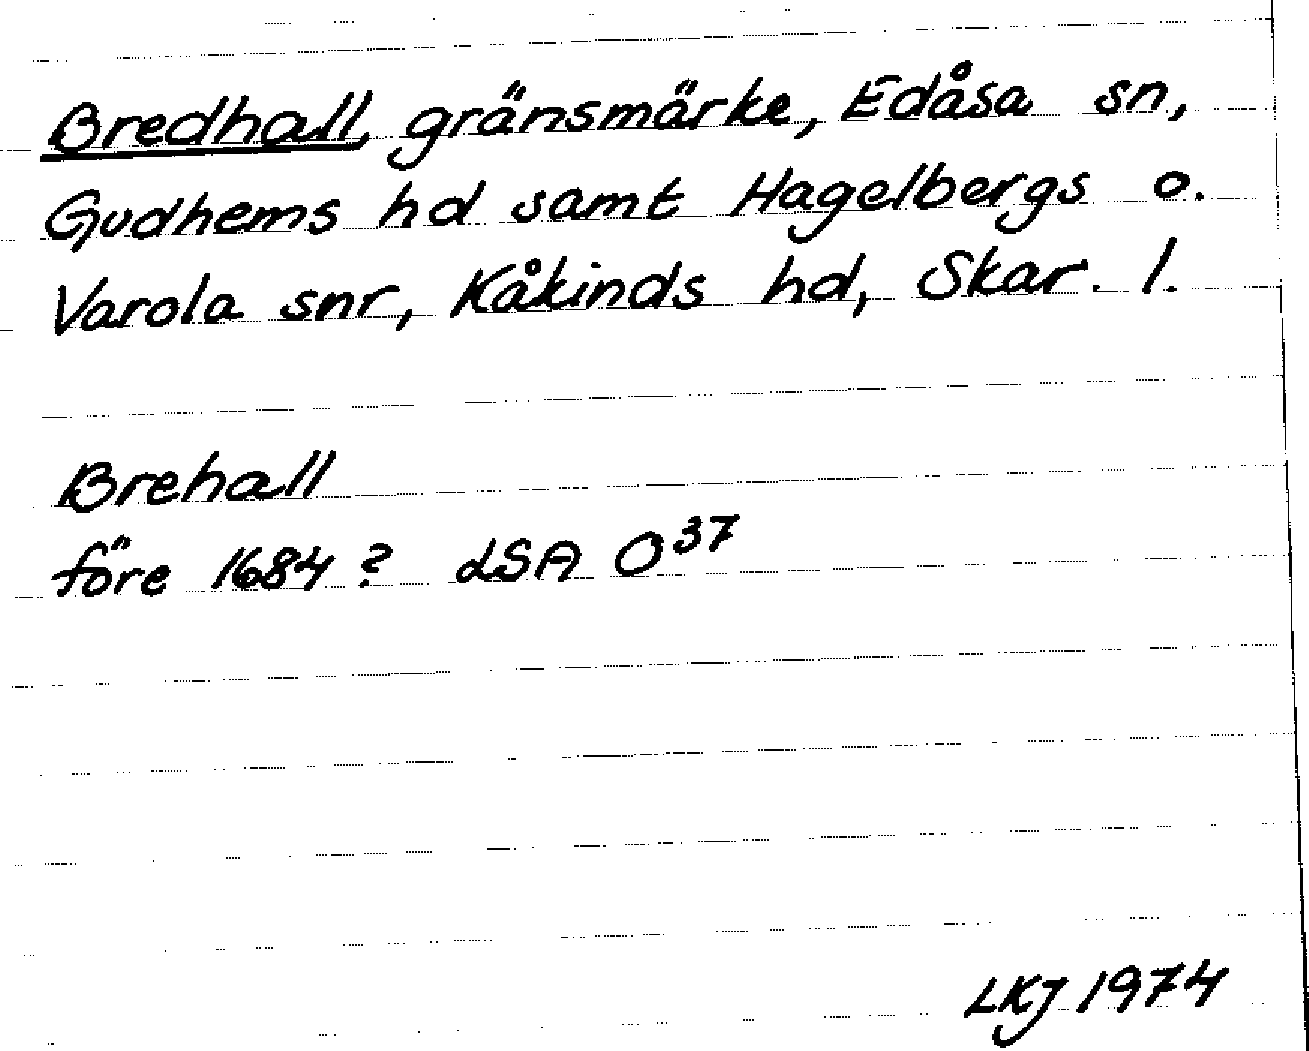 Bredhall, gränsmärke, Edåsa sn,
Gudhems hd samt Hagelbergs o.
Varola snr, Kåkinds hd, Skar. l.
Brehall
före 1684? LSA O37
LKJ 1974